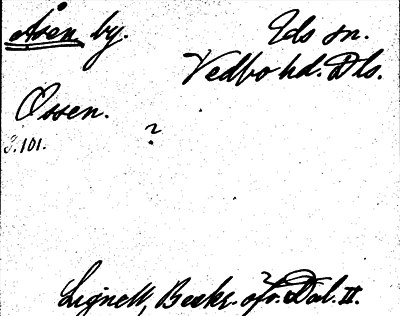 Åsen by.
Eds sn.
Vedbo hd. Dls.
Ossen.
?
S. 101.
Lignell, Beskr. öfv. Dal. II.